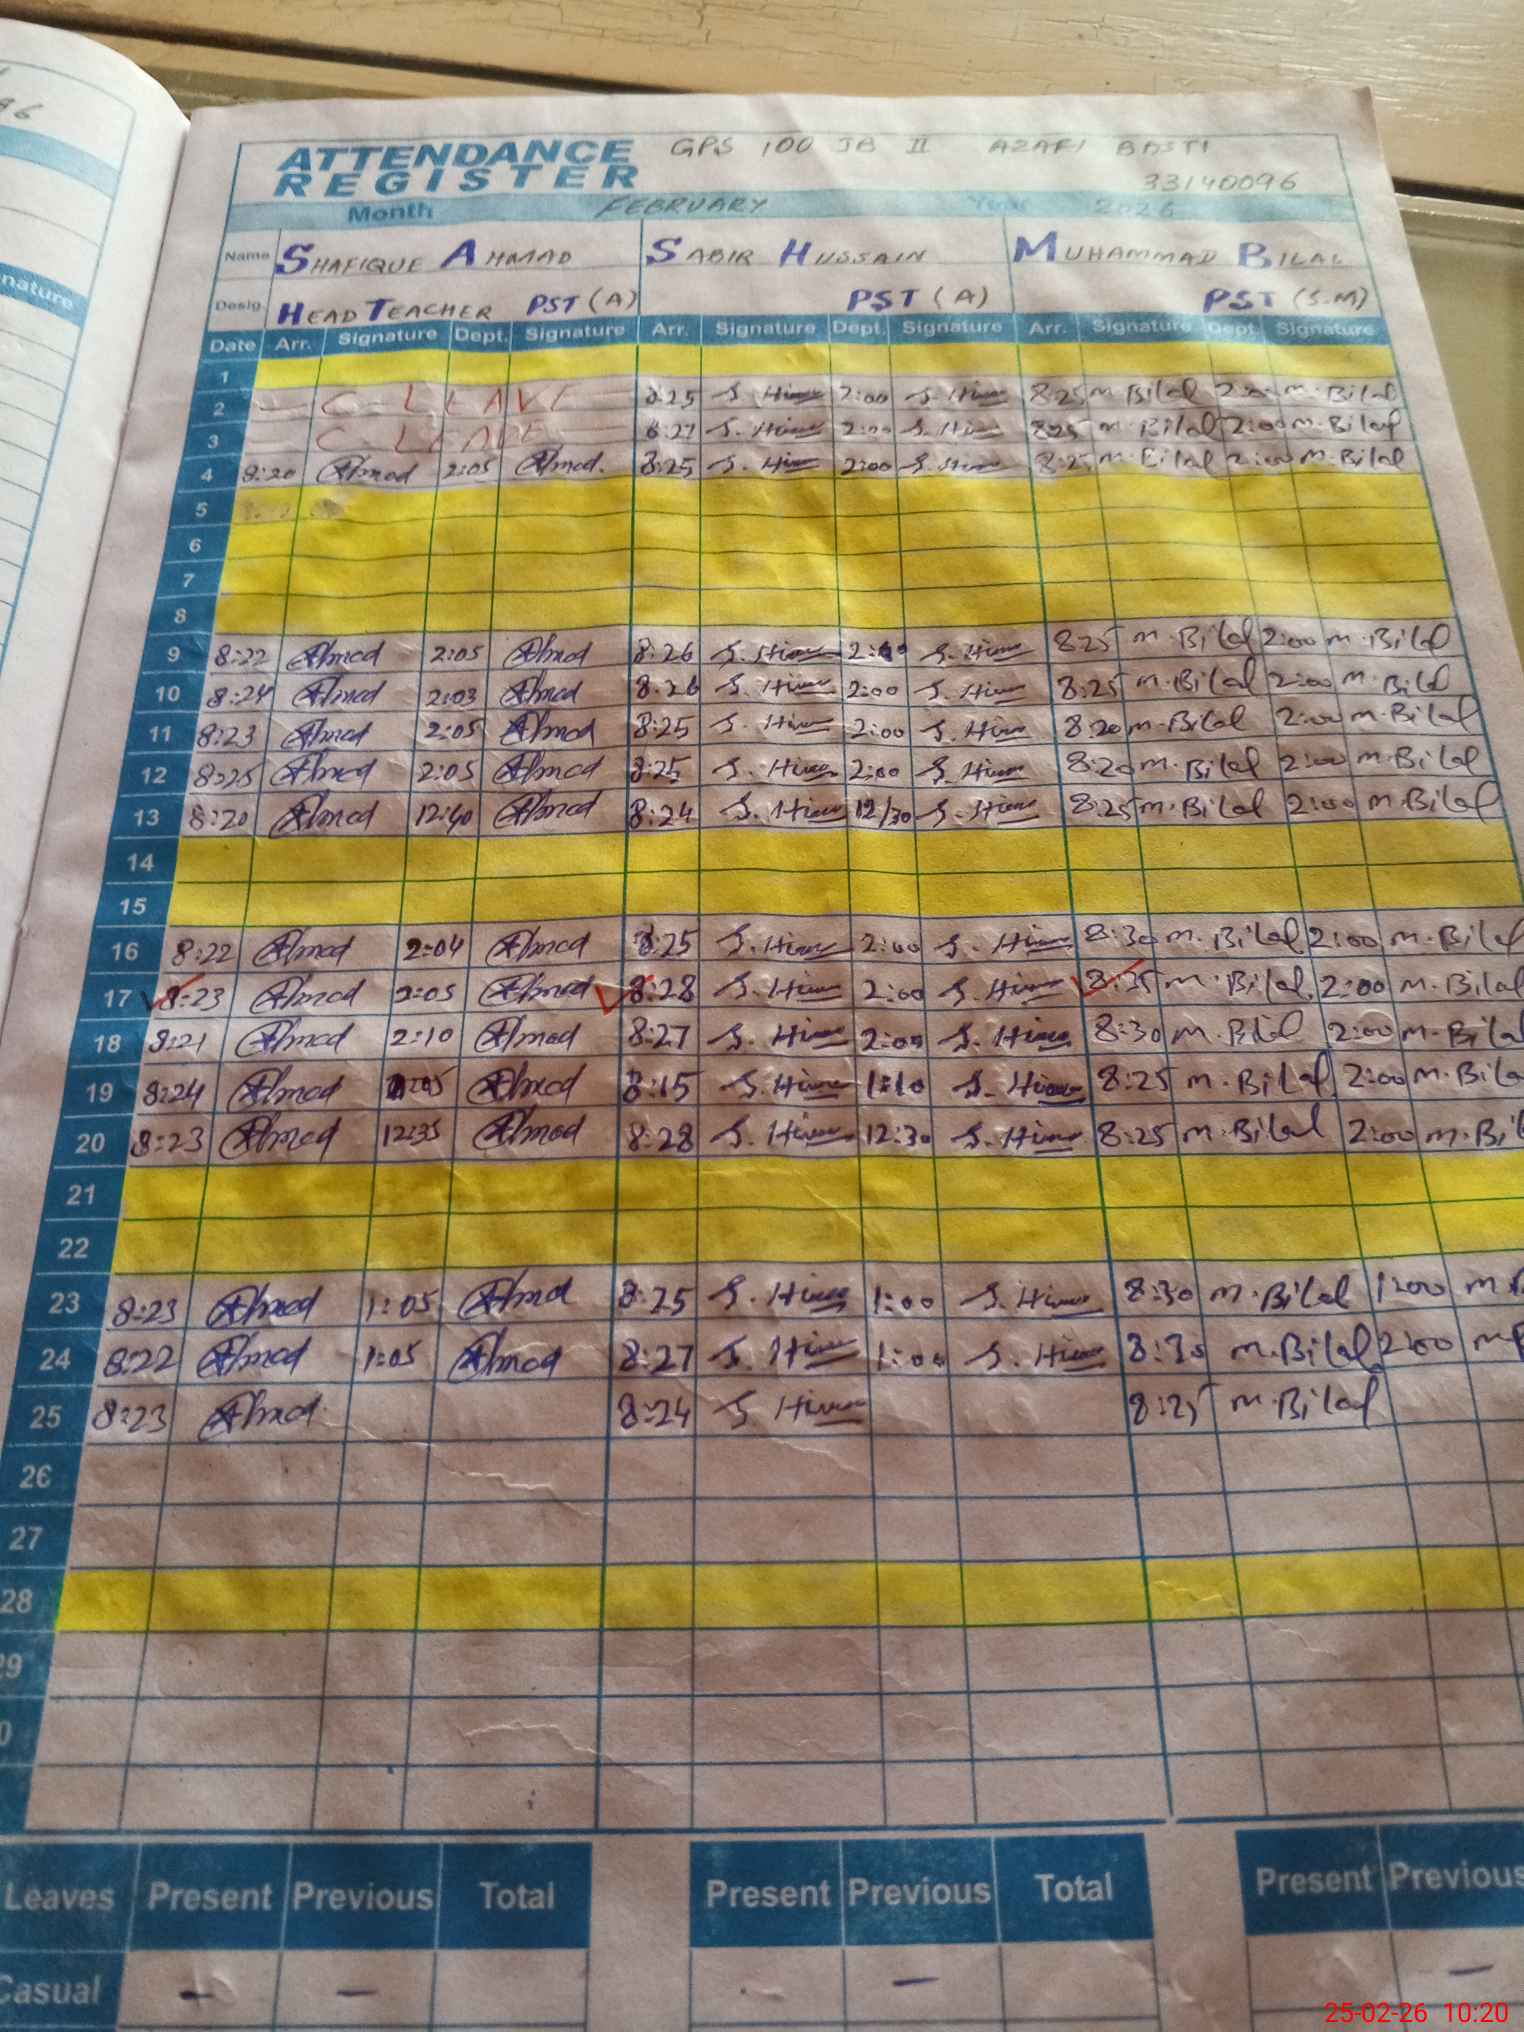 96
nature
ATTENDANCE REGISTER GPS 100 JB II AZAFI BASTI
33140096
Month FEBRUARY Year 2026
Name SHAFIQUE AHMAD SABIR HUSSAIN MUHAMMAD BILAL
Desig. HEAD TEACHER PST (A) PST (A) PST (S-M)
Date Arr. Signature Dept. Signature Arr. Signature Dept. Signature Arr. Signature Dept. Signature
1
2 C - LEAVE 8:25 2:00 8:25 M.Bilal 2:00 M.Bilal
3 C - LEAVE 8:27 2:00 8:25 M.Bilal 2:00 M.Bilal
4 8:20 Ahmad 2:05 Ahmad. 8:25 2:00 8:25 M.Bilal 2:00 M.Bilal
5
6
7
8
9 8:22 Ahmad 2:05 Ahmad 8:26 8:25 M.Bilal 2:00 M.Bilal
10 8:24 Ahmad 2:03 Ahmad 8:26 2:00 8:25 M.Bilal 2:00 M.Bilal
11 8:23 Ahmad 2:05 Ahmad 8:25 2:00 8:20 M.Bilal 2:00 M.Bilal
12 8:25 Ahmad 2:05 Ahmad 8:25 2:00 8:20 M.Bilal 2:00 M.Bilal
13 8:20 Ahmad 12:40 Ahmad 8:24 12/30 8:25 M.Bilal 2:00 M.Bilal
14
15
16 8:22 Ahmad 2:04 Ahmad 8:25 2:00 8:30 M.Bilal 2:00 M.Bilal
17 8:23 Ahmad 2:05 Ahmad 8:28 2:00 M.Bilal 2:00 M.Bilal
18 8:21 Ahmad 2:10 Ahmad 8:27 2:00 8:30 M.Bilal 2:00 M.Bilal
19 8:24 Ahmad Ahmad 8:15 1:10 8:25 M.Bilal 2:00 M.Bila
20 8:23 Ahmad 12:35 Ahmad 8:28 12:30 8:25 M.Bilal 2:00 M.Bil
21
22
23 8:23 Ahmad 1:05 Ahmad 8:25 1:00 8:30 M.Bilal 1:00 M
24 8:22 Ahmad 1:05 Ahmad 8:27 1:00 8:30 M.Bilal 2:00 M
25 8:23 Ahmad 8:24 8:25 M.Bilal
26
27
28
29
0
Leaves Present Previous Total Present Previous Total Present Previous
Casual - - - -
25-02-26 10:20